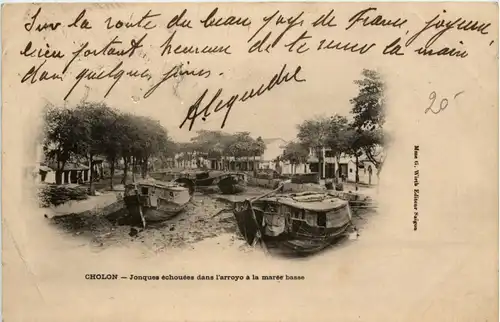 Sur la route du beau pays de France, joyeux et
bien portant, heureux de te serrer la main
dans quelques jours.
20
CHOLON — Jonques échouées dans l'arroyo à la marée basse
Mme G. Wirth Editeur Saigon